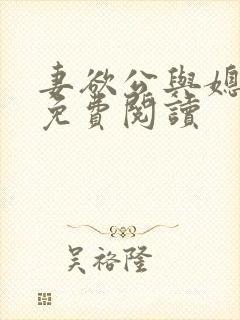 妻欲公與媳
免費閱讀
吳裕隆